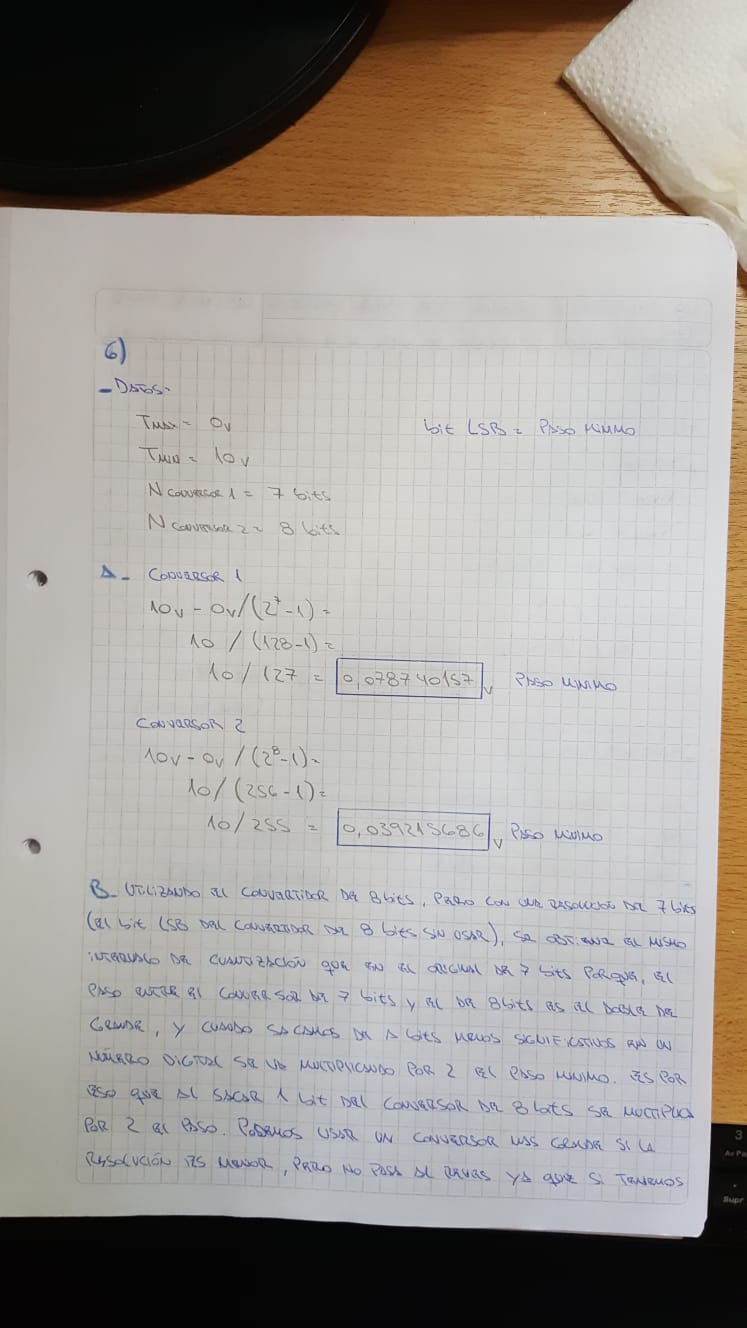 6)
- DATOS -
TMAX = 0v
bit LSB = PASO MINIMO
TMIN = 10v
N CONVERSOR 1 = 7 bits
N CONVERSOR 2 = 8 bits
A - CONVERSOR 1
10v - 0v/(2⁷-1) =
10 / (128-1) =
10 / 127 = 0,078740157 v PASO MINIMO
CONVERSOR 2
10v - 0v / (2⁸-1) =
10 / (256-1) =
10 / 255 = 0,039215686 v PASO MINIMO
B - UTILIZANDO EL CONVERTIDOR DE 8 bits, PERO CON UNA RESOLUCION DE 7 bits
(EL bit LSB DEL CONVERTIDOR DE 8 bits SIN USAR), SE OBTIENE EL MISMO
INTERVALO DE CUANTIZACIÓN QUE EN EL ORIGINAL DE 7 bits PORQUE, EL
PASO ENTRE EL CONVERSOR DE 7 bits Y EL DE 8 bits ES EL DOBLE DE
GRANDE, Y CUANDO SACAMOS DE A bits MENOS SIGNIFICATIVOS EN UN
NÚMERO DIGITAL SE VA MULTIPLICANDO POR 2 EL PASO MINIMO. ES POR
ESO QUE AL SACAR 1 bit DEL CONVERSOR DE 8 bits SE MULTIPLICA
POR 2 EL PASO. PODEMOS USAR UN CONVERSOR MAS GRANDE SI LA
RESOLUCIÓN ES MENOR, PERO NO PASA AL REVES YA QUE SI TENEMOS
3
Supr